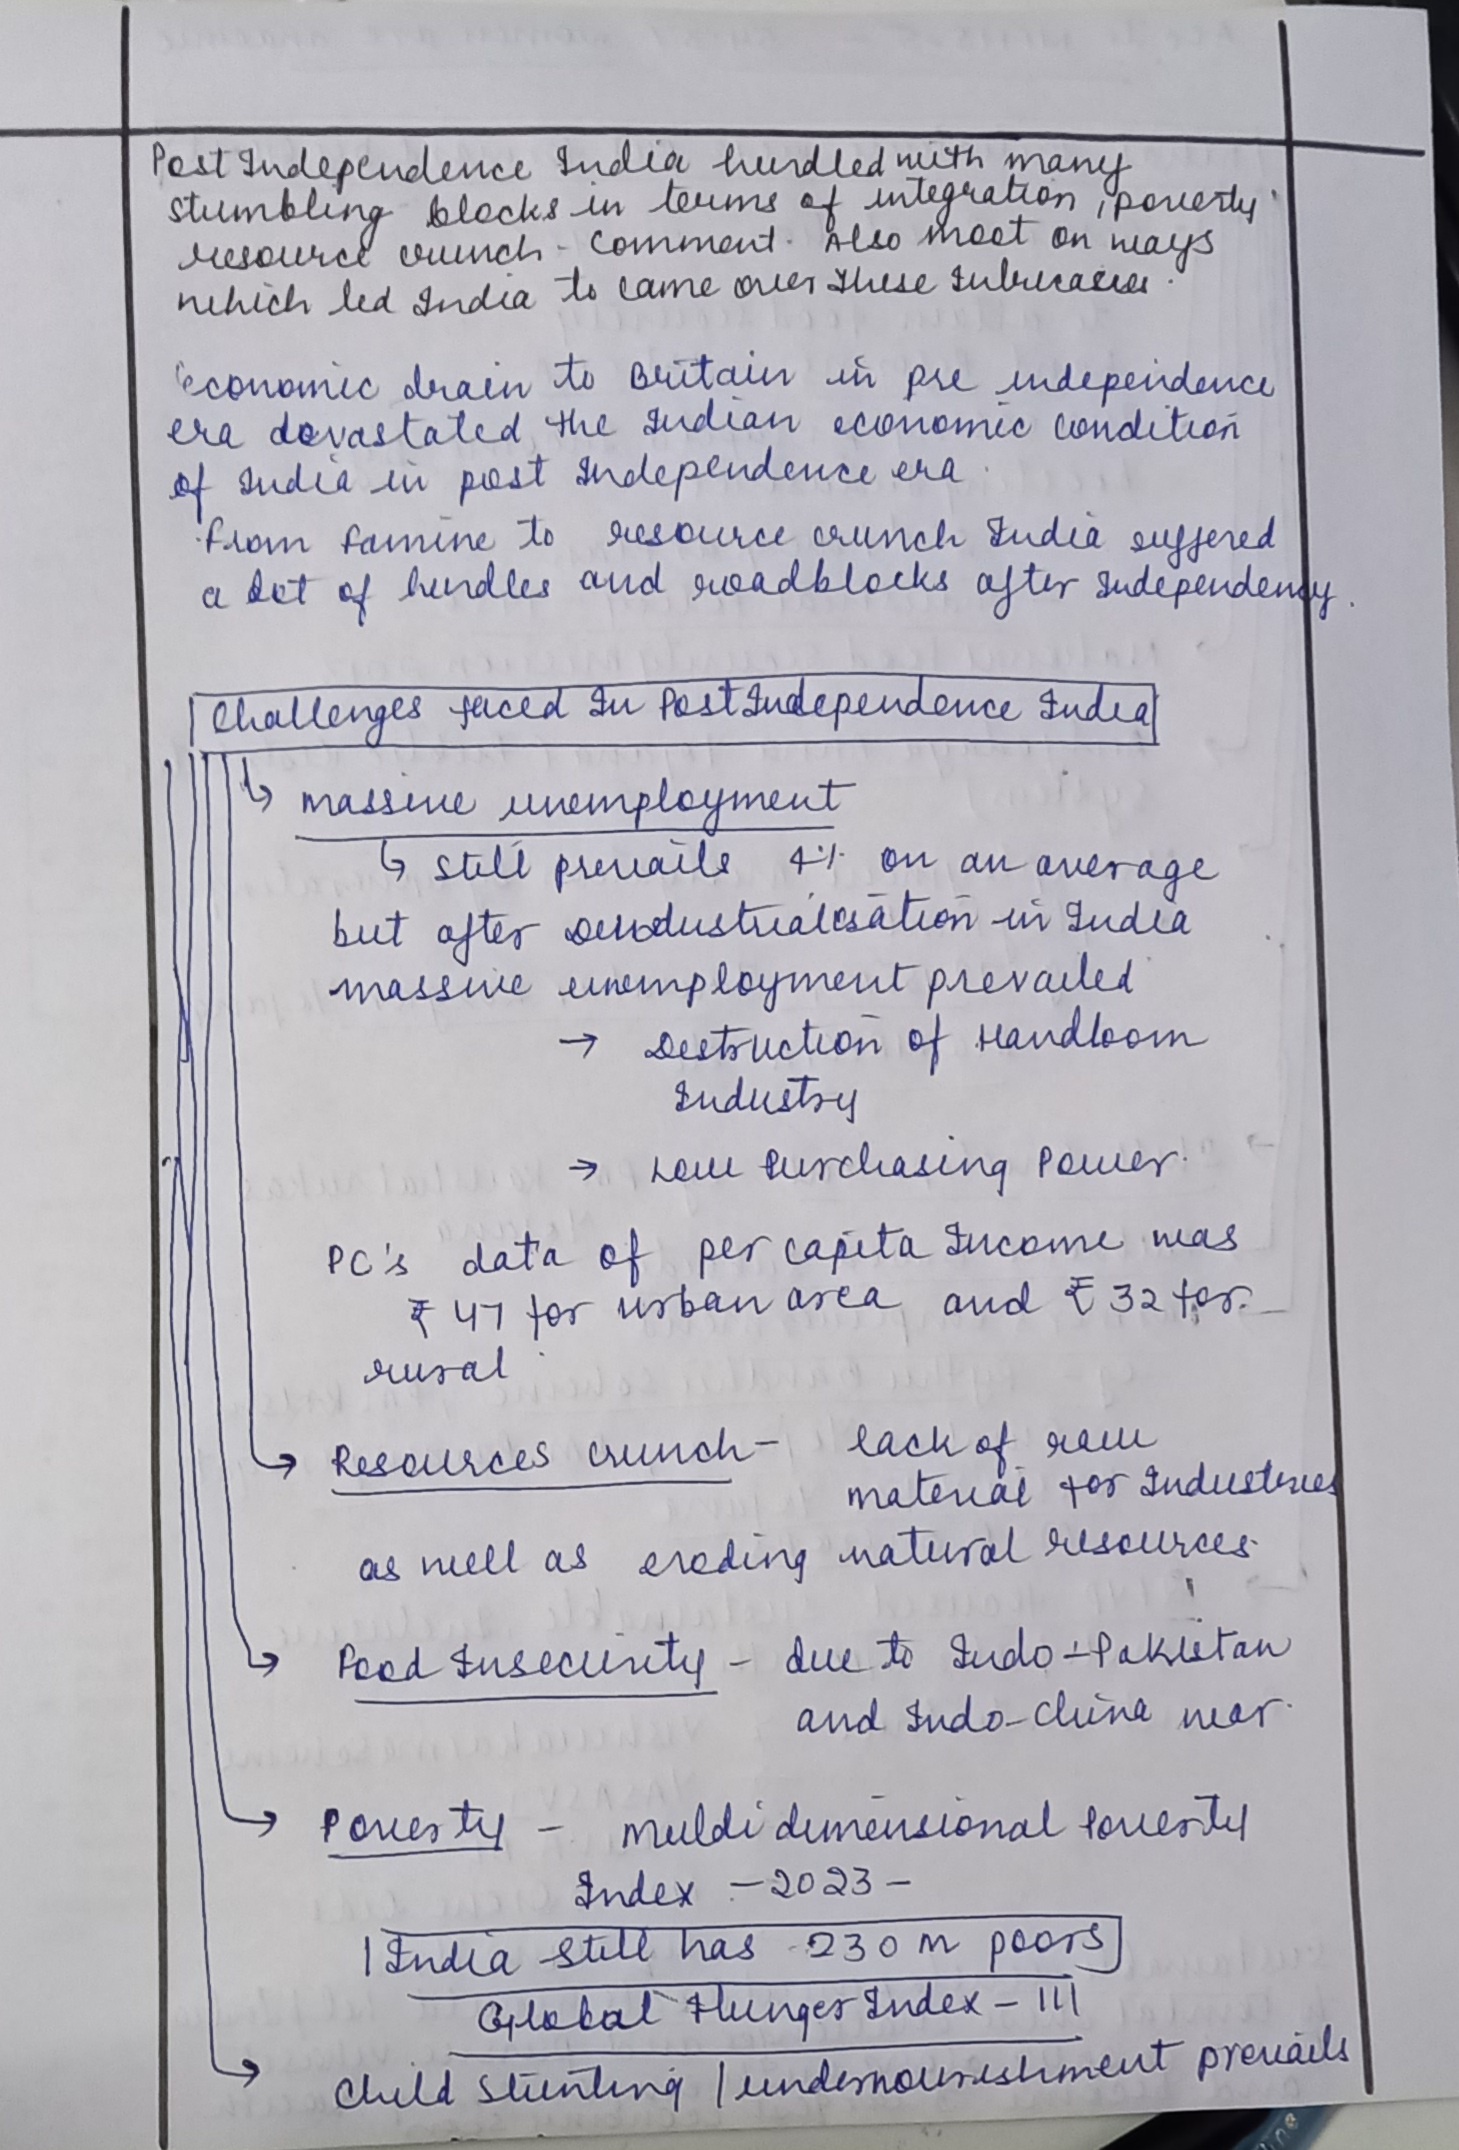 Post Independence India hurdled with many
stumbling blocks in terms of integration, poverty
resource crunch - Comment. Also moot on ways
which led India to came over these
economic drain to Britain in pre independence
era devastated the Indian economic condition
of India in post Independence era.
From famine to resource crunch India suffered
a lot of hurdles and roadblocks after Independency.
Challenges faced In Post Independence India
massive unemployment
still prevails 4% on an average
but after Deindustrialisation in India
massive unemployment prevailed
→ Destruction of Handloom
Industry
→ Low Purchasing Power.
PC's data of per capita Income was
₹ 47 for urban area and ₹ 32 for
rural
Resources crunch - lack of raw
material for Industries
as well as eroding natural resources.
Food Insecurity - due to Indo-Pakistan
and Indo-China war.
Poverty - Muldi dimensional Poverty
Index - 2023 -
India still has 230 m poors
Global Hunger Index - 111
Child Stunting / undernourishment prevails